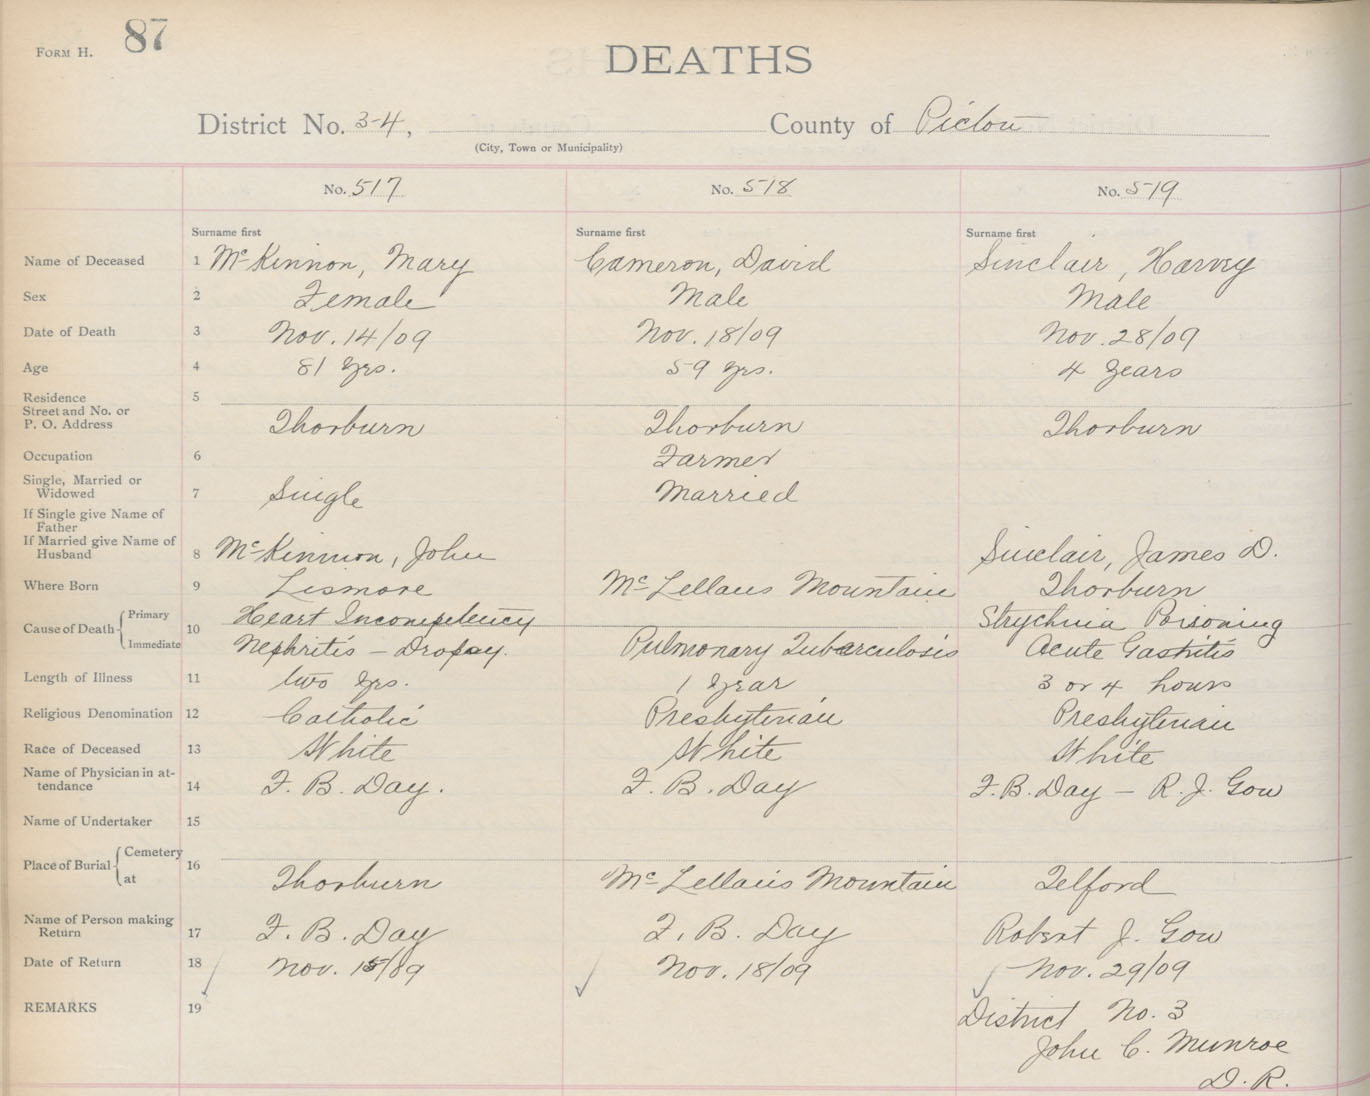 FORM H. 87
DEATHS
District No. 3-4, County of Pictou
(City, Town or Municipality)
No. 517 No. 518 No. 519
Surname first Surname first Surname first
Name of Deceased 1 McKinnon, Mary Cameron, David Sinclair, Harvey
Sex 2 Female Male Male
Date of Death 3 Nov. 14/09 Nov. 18/09 Nov. 28/09
Age 4 81 yrs. 59 yrs. 4 years
Residence 5
Street and No. or
P. O. Address Thorburn Thorburn Thorburn
Occupation 6 Farmer
Single, Married or
Widowed 7 Single Married
If Single give Name of
Father
If Married give Name of
Husband 8 McKinnon, John Sinclair, James D.
Where Born 9 Lismore McLellans Mountain Thorburn
Cause of Death Primary 10 Heart Incompetency Strychnia Poisoning
Immediate Nephritis - Dropsy. Pulmonary Tuberculosis Acute Gastritis
Length of Illness 11 two yrs. 1 year 3 or 4 hours
Religious Denomination 12 Catholic Presbyterian Presbyterian
Race of Deceased 13 White White White
Name of Physician in at-
tendance 14 F. B. Day. F. B. Day F. B. Day - R. J. Gow
Name of Undertaker 15
Place of Burial Cemetery 16
at Thorburn McLellans Mountain Telford
Name of Person making
Return 17 F. B. Day F. B. Day Robert J. Gow
Date of Return 18 Nov. 15/09 Nov. 18/09 Nov. 29/09
REMARKS 19 District No. 3
John C. Munroe
D. R.